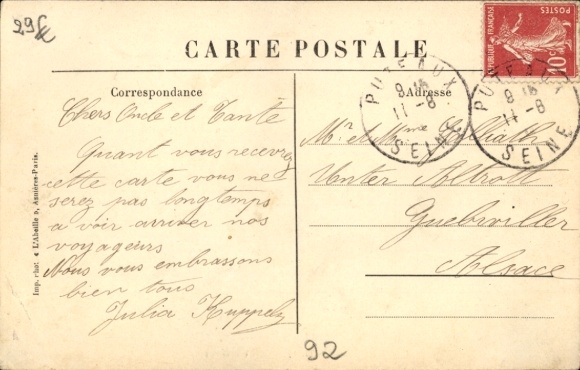 CARTE POSTALE
RÉPUBLIQUE FRANÇAISE
POSTES
10c
PUTEAUX
9 15
11-8
SEINE
PUTEAUX
9 15
11-8
SEINE
Correspondance
Chers Oncle et Tante
Quant vous recevrez
cette carte vous ne
serez pas longtemps
a voir arriver nos
voyageurs
Nous vous embrassons
bien tous
Julia Kuppely
Adresse
Mr et Mme
Unter Altrott
Guebwiller
Alsace
Imp. phot. « L'Abeille », Asnières-Paris.
92